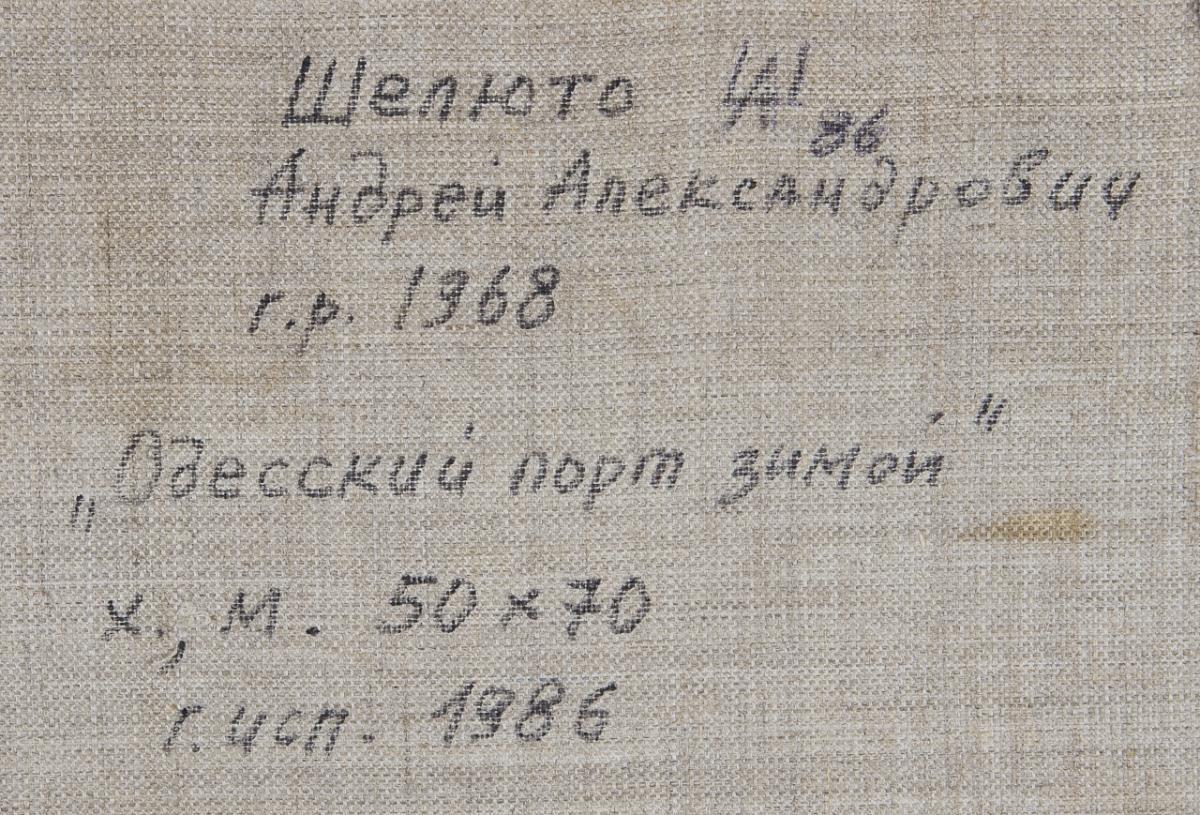 Шелюто ША 86
Андрей Александрович
г.р. 1968
„Одесский порт зимой"
х., м. 50×70
г. исп. 1986